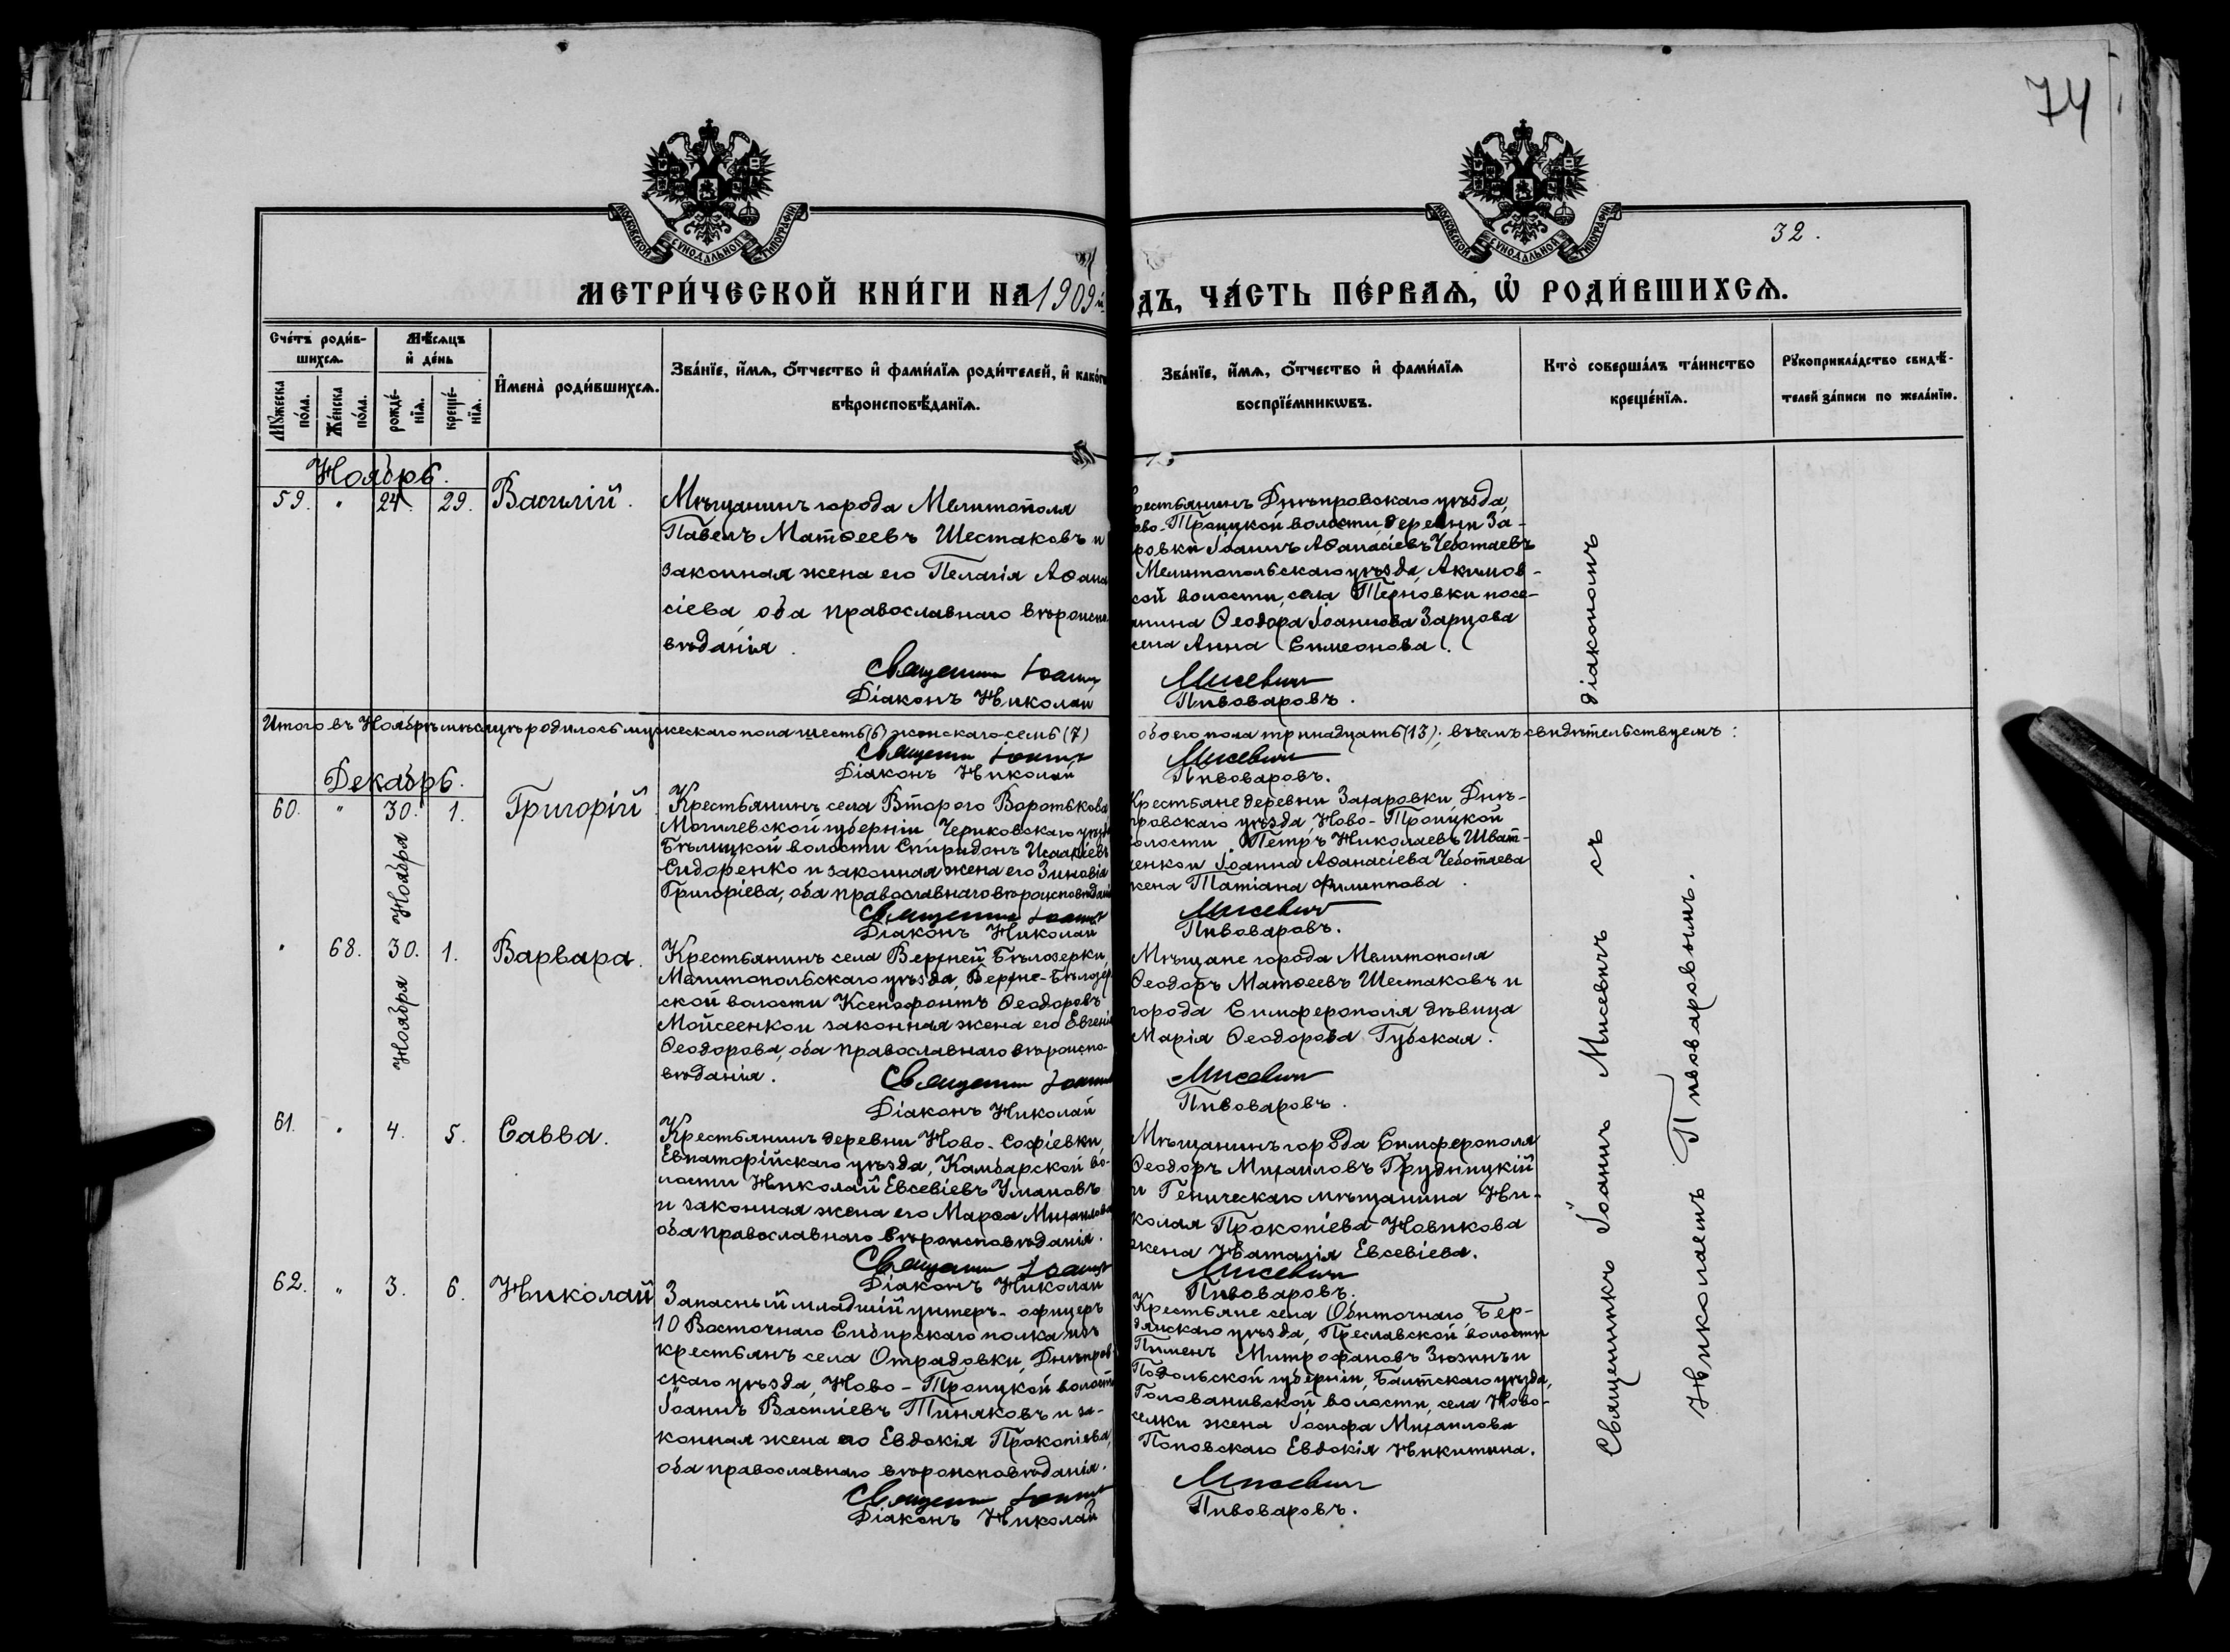 74
МОСКОВСКОЙ СѴНОДАЛЬНОЙ ТИПОГРАФІИ
МОСКОВСКОЙ СѴНОДАЛЬНОЙ ТИПОГРАФІИ
32.
МЕТРИ́ЧЕСКОЙ КНИ́ГИ НА 1909й
ДЪ, ЧА́СТЬ ПЕ́РВАѦ, Ѡ҆ РОДИ́ВШИХСѦ.
Сче́тъ роди́в-
шихсѧ.
Мѣ́сѧцъ
и҆ де́нь
Мꙋ́жеска
по́ла.
Же́нска
по́ла.
рожде́-
нїѧ.
креще́-
нїѧ.
И҆мена̀ роди́вшихсѧ.
Зва́нїе, и҆́мѧ, ѻ҆́тчество и҆ фами́лїѧ роди́телей, и҆ како́гѡ
вѣроисповѣ́данїѧ.
Зва́нїе, и҆́мѧ, ѻ҆́тчество и҆ фами́лїѧ
воспрїе́мникѡвъ.
Кто̀ соверша́лъ та́инство
креще́нїѧ.
Рꙋкоприкла́дство свидѣ́-
телей за́писи по жела́нїю.
Ноябрь.
59. " 24. 29. Василій.
Мѣщанинъ города Мелитополя
Павелъ Матѳеевъ Шестаковъ и
законная жена его Пелагія Аѳана
сіева, оба православнаго вѣроиспо
вѣданія.
Священник Іоанн
Діаконъ Николай
рестьянинъ Днѣпровскаго уѣзда,
ово-Троицкой волости деревни За-
ровки Іоаннъ Аѳанасіевъ Чеботаевъ
Мелитопольскаго уѣзда, Акимов-
ской волости, села Терновки посе-
янина Ѳеодора Іоаннова Зарцова
жена Анна Симеонова.
Мисевич
Пивоваровъ.
Итого въ Ноябрѣ мѣсяцѣ родилось мужескаго пола шесть (6) женскаго-семь (7)
обоего пола тринадцать (13); въ чемъ свидѣтельствуемъ:
Священник Іоанн
Діаконъ Николай
Мисевич
Пивоваровъ.
Декабрь.
60. " 30. Ноября 1. Григорій
Крестьянинъ села Второго Воротькова
Могилевской губерніи, Чериковскаго уѣзда
Бѣлицкой волости Спиридонъ Исаакіевъ
Сидоренко и законная жена его Зиновія
Григоріева, оба православнаго вѣроисповѣданія
Священник Іоанн
Діаконъ Николай
Крестьяне деревни Захаровки, Днѣ-
провскаго уѣзда, Ново-Троицкой
волости Петръ Николаевъ Шват-
ченко и Іоанна Аѳанасіева Чеботаева
жена Татіана Филиппова.
Мисевич
Пивоваровъ.
" 68. 30. Ноября 1. Варвара.
Крестьянинъ села Верхней Бѣлозерки,
Мелитопольскаго уѣзда, Верхне-Бѣлозер
ской волости Ксенофонтъ Ѳеодоровъ
Мойсеенко и законная жена его Евгенія
Ѳеодорова, оба православнаго вѣроиспо-
вѣданія.
Священник Іоанн
Діаконъ Николай
Мѣщане города Мелитополя
Ѳеодоръ Матѳеевъ Шестаковъ и
города Симферополя дѣвица
Марія Ѳеодорова Губская.
Мисевич
Пивоваровъ.
61. " 4. 5. Савва.
Крестьянинъ деревни Ново-Софіевки,
Евпаторійскаго уѣзда, Камбарской во-
лости Николай Евсевіевъ Умановъ
и законная жена его Марѳа Михаилова
оба православнаго вѣроисповѣданія.
Священник Іоанн
Діаконъ Николай
Мѣщанинъ города Симферополя
Ѳеодоръ Михаиловъ Грудницкій
и Геническаго мѣщанина Ни-
колая Прокопіева Новикова
жена Наталія Евсевіева.
Мисевич
Пивоваровъ.
62. " 3. 6. Николай
Запасный младшій унтеръ-офицеръ
10 Восточнаго Сибирскаго полка изъ
крестьянъ села Отрадовки, Днѣпров
скаго уѣзда, Ново-Троицкой волости
Іоаннъ Василіевъ Тиняковъ и за-
конная жена его Евдокія Прокопіева,
оба православнаго вѣроисповѣданія.
Священник Іоанн
Діаконъ Николай
Крестьяне села Обиточнаго, Бер-
дянскаго уѣзда, Преславской волости
Пименъ Митрофановъ Зюзинъ и
Подольской губерніи, Балтскаго уѣзда,
Голованивской волости, села Ново-
селки жена Іосифа Михаилова
Поповскаго Евдокія Никитина.
Мисевич
Пивоваровъ.
Священникъ Іоаннъ Мисевичъ съ діакономъ
Николаемъ Пивоваровымъ.